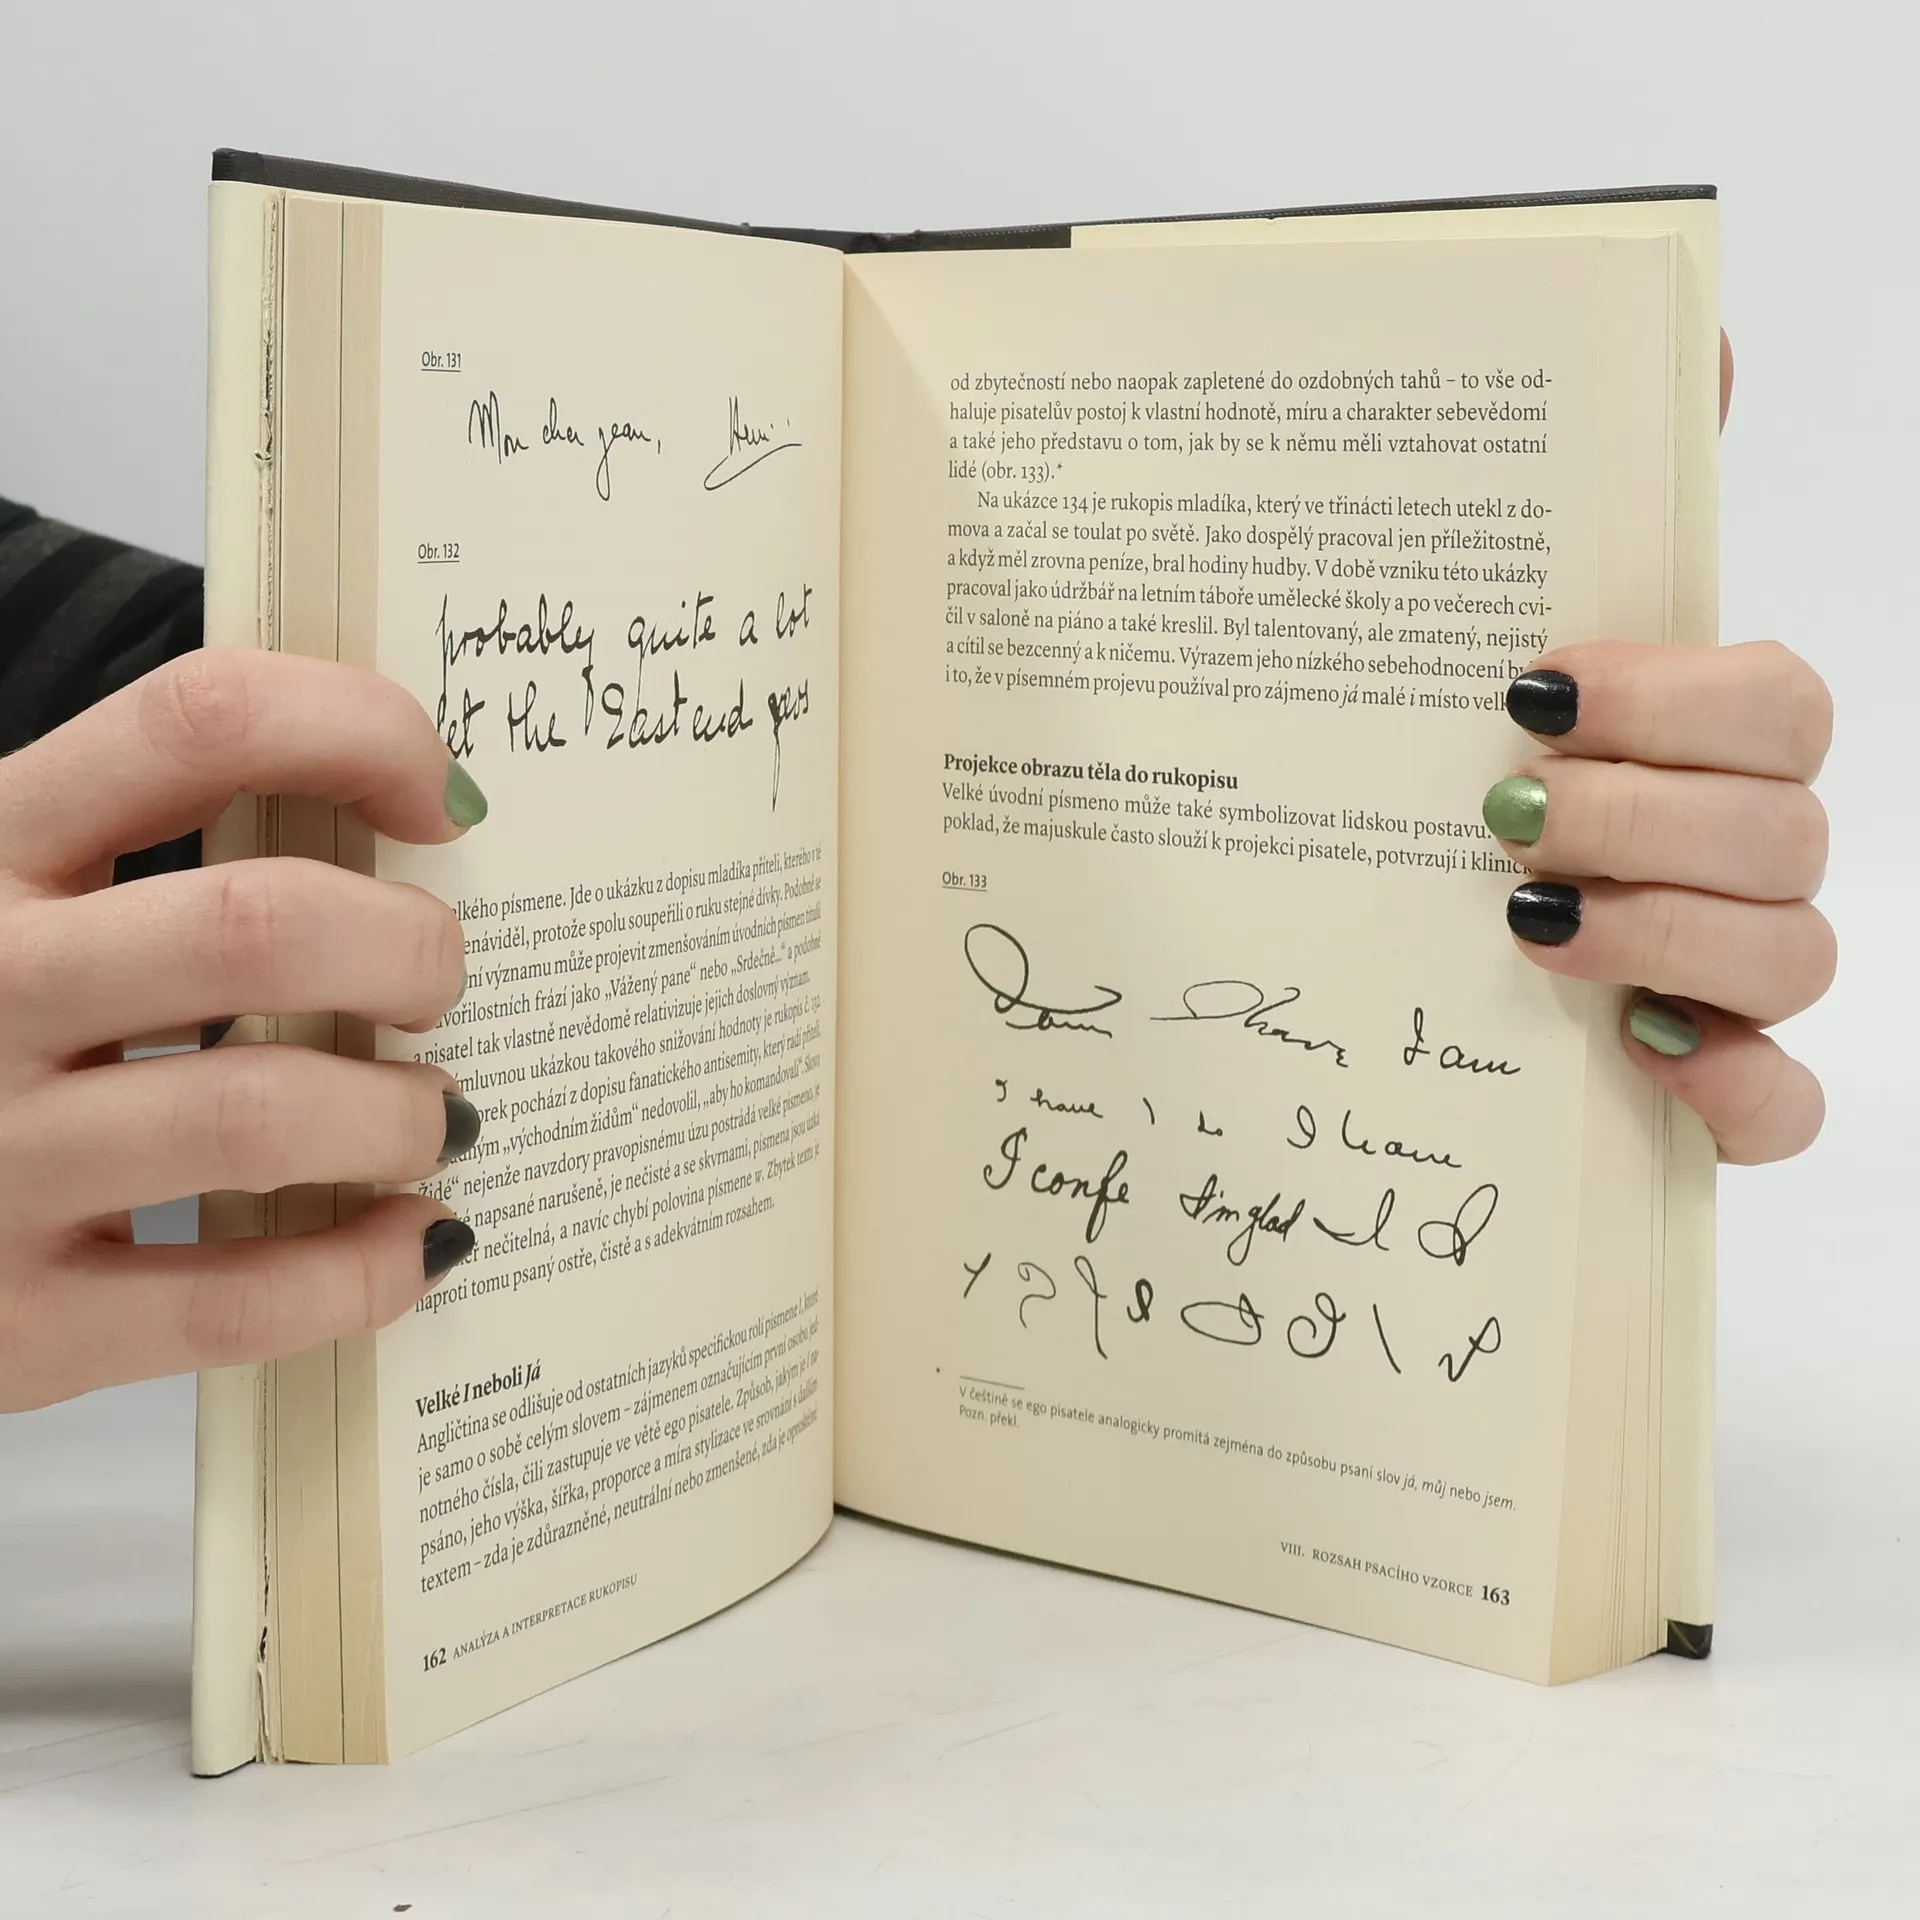 Obr. 131
Mon cher jean,
Obr. 132
probably quite a lot
let the East end jews
elkého písmene. Jde o ukázku z dopisu mladíka příteli, kterého v té
enáviděl, protože spolu soupeřili o ruku stejné dívky. Podobně se
ní významu může projevit zmenšováním úvodních písmen titulů
vořilostních frází jako „Vážený pane“ nebo „Srdečně...“ a podobně
a pisatel tak vlastně nevědomě relativizuje jejich doslovný význam.
mluvnou ukázkou takového snižování hodnoty je rukopis č. 132
orek pochází z dopisu fanatického antisemity, který radí příteli,
ným „východním židům“ nedovolil, „aby ho komandovali“. Slovo
„Židé“ nejenže navzdory pravopisnému úzu postrádá velké písmeno, je
ké napsané narušeně, je nečisté a se skvrnami, písmena jsou úzká
ěř nečitelná, a navíc chybí polovina písmene w. Zbytek textu je
naproti tomu psaný ostře, čistě a s adekvátním rozsahem.
Velké I neboli Já
Angličtina se odlišuje od ostatních jazyků specifickou rolí písmene I, které
je samo o sobě celým slovem – zájmenem označujícím první osobu jed-
notného čísla, čili zastupuje ve větě ego pisatele. Způsob, jakým je I na-
psáno, jeho výška, šířka, proporce a míra stylizace ve srovnání s dalším
textem – zda je zdůrazněné, neutrální nebo zmenšené, zda je oproštěné
162 ANALÝZA A INTERPRETACE RUKOPISU
od zbytečností nebo naopak zapletené do ozdobných tahů – to vše od-
haluje pisatelův postoj k vlastní hodnotě, míru a charakter sebevědomí
a také jeho představu o tom, jak by se k němu měli vztahovat ostatní
lidé (obr. 133).*
Na ukázce 134 je rukopis mladíka, který ve třinácti letech utekl z do-
mova a začal se toulat po světě. Jako dospělý pracoval jen příležitostně,
a když měl zrovna peníze, bral hodiny hudby. V době vzniku této ukázky
pracoval jako údržbář na letním táboře umělecké školy a po večerech cvi-
čil v saloně na piáno a také kreslil. Byl talentovaný, ale zmatený, nejistý
a cítil se bezcenný a k ničemu. Výrazem jeho nízkého sebehodnocení by
i to, že v písemném projevu používal pro zájmeno já malé i místo velk
Projekce obrazu těla do rukopisu
Velké úvodní písmeno může také symbolizovat lidskou postavu.
poklad, že majuskule často slouží k projekci pisatele, potvrzují i klinick
Obr. 133
I am I have I am
I have I do I have
I confe I'm glad I I
* V češtině se ego pisatele analogicky promítá zejména do způsobu psaní slov já, můj nebo jsem.
Pozn. překl.
VIII. ROZSAH PSACÍHO VZORCE 163